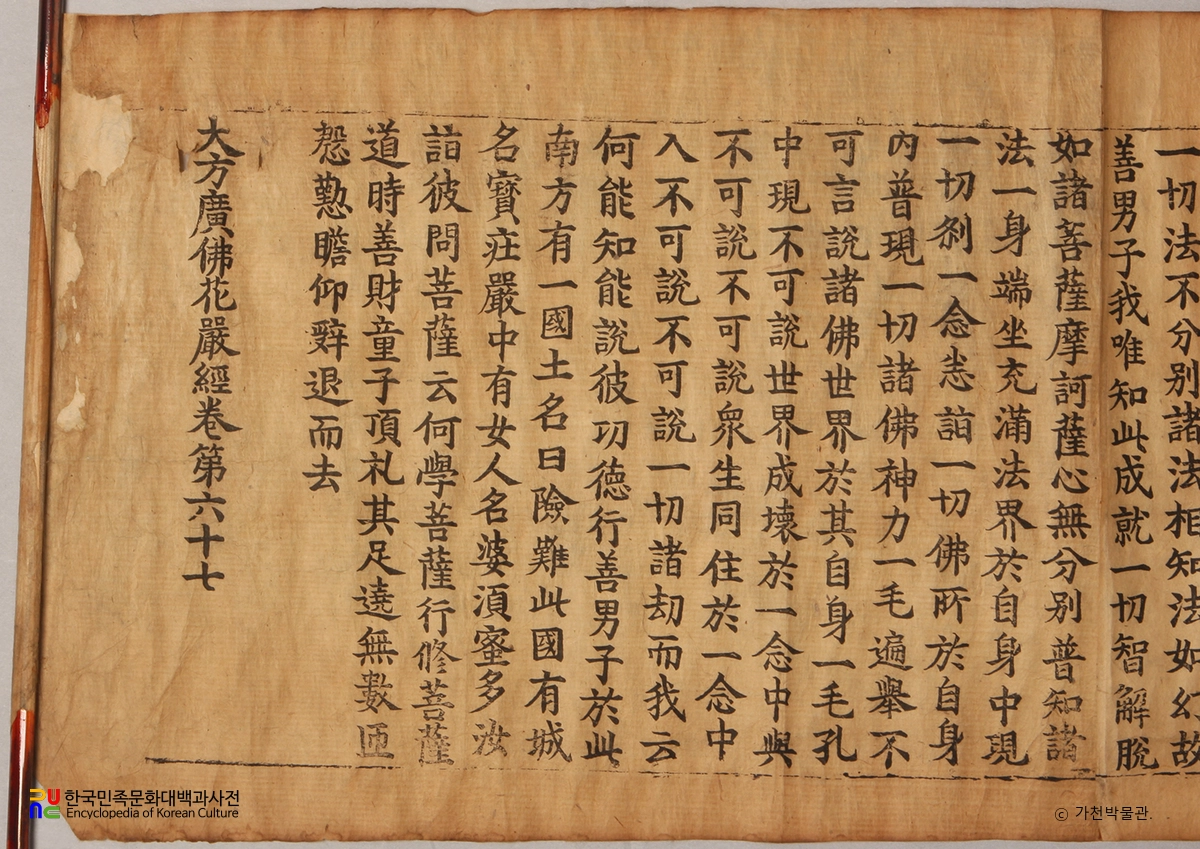 一切法不分別諸法相知法如幻故
善男子我唯知此成就一切智解脫
如諸菩薩摩訶薩心無分別普知諸
法一身端坐充滿法界於自身中現
一切刹一念悉詣一切佛所於自身
內普現一切諸佛神力一毛遍舉不
可言說諸佛世界於其自身一毛孔
中現不可說世界成壞於一念中與
不可說不可說衆生同住於一念中
入不可說不可說一切諸劫而我云
何能知能說彼功德行善男子於此
南方有一國土名曰險難此國有城
名寶莊嚴中有女人名婆須蜜多汝
詣彼問菩薩云何學菩薩行修菩薩
道時善財童子頂礼其足遶無數匝
慇懃瞻仰辭退而去
大方廣佛花嚴經卷第六十七
한국민족문화대백과사전
Encyclopedia of Korean Culture
© 가천박물관.